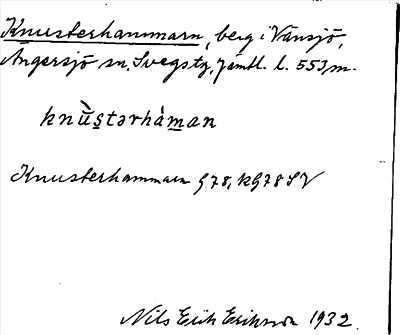 Knusterhammarn, berg i Vänsjö,
Ängersjö sn, Svegs tg, Jämtl. l. 553 m.
knù̄s̲tərhàm̲an
Knusterhammarn G 78, KG 78 SV
Nils Erik Erikson 1932